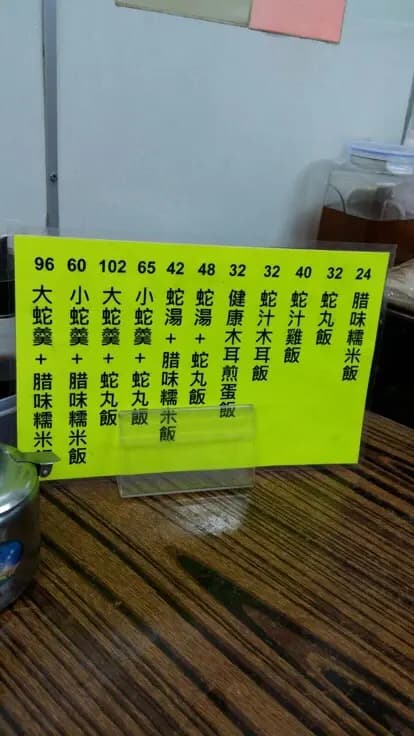 24 腊味糯米飯
32 蛇丸飯
40 蛇汁雞飯
32 蛇汁木耳飯
32 健康木耳煎蛋飯
48 蛇湯+蛇丸飯
42 蛇湯+腊味糯米飯
65 小蛇羹+蛇丸飯
102 大蛇羹+蛇丸飯
60 小蛇羹+腊味糯米飯
96 大蛇羹+腊味糯米